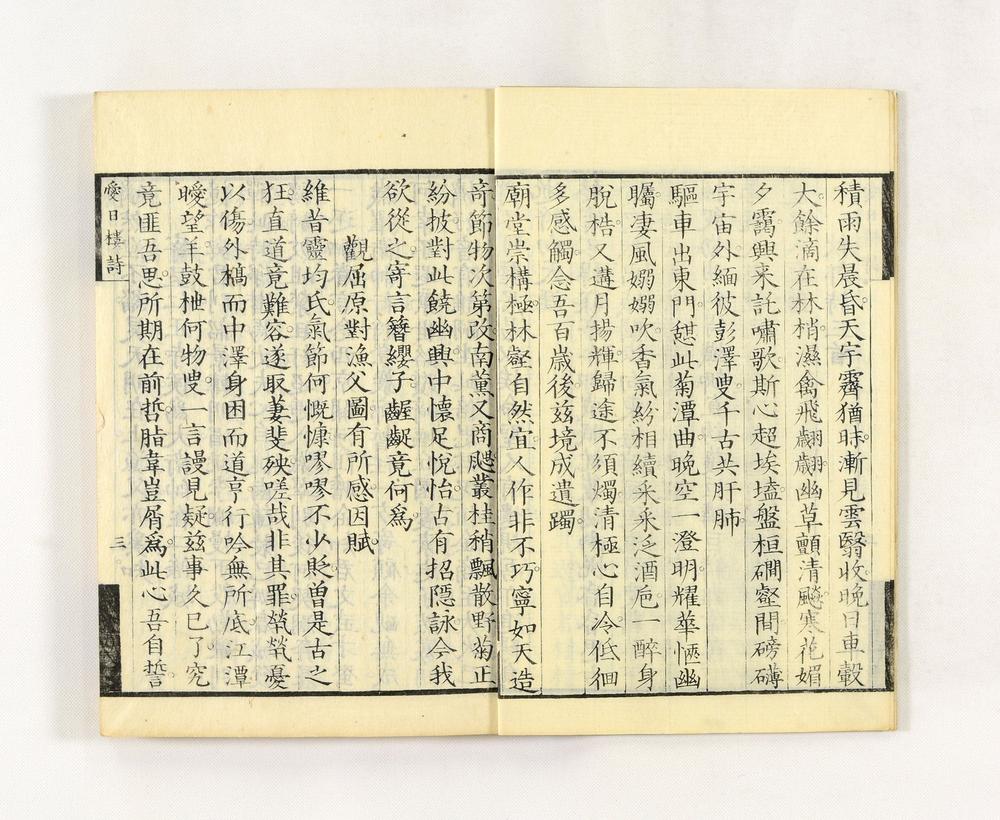 積雨失晨昏天宇霽猶昧漸見雲翳收晚日車轂
大餘滴在林梢濕禽飛翩翩幽草顫清飈寒花媚
夕靄興来託嘯歌斯心超埃壒盤桓磵壑間磅礴
宇宙外緬彼彭澤叟千古共肝肺
驅車出東門憇此菊潭曲晚空一澄明耀華愜幽
矚凄風嫋嫋吹香氣紛相續采采泛酒卮一醉身
脫梏又遘月揚輝歸途不須燭清極心自冷低徊
多感觸念吾百歲後兹境成遺躅
廟堂崇構極林壑自然宜人作非不巧寧如天造
奇節物次第改南薰又商飔叢桂稍飄散野菊正
紛披對此饒幽興中懷足悅怡古有招隱詠今我
欲從之寄言簪纓子齷齪竟何爲
觀屈原對漁父圖有所感因賦
維昔靈均氏氣節何慨慷嘐嘐不少貶曾是古之
狂直道竟難容遂取萋斐殃嗟哉非其罪煢煢憂
以傷外槁而中澤身困而道亨行吟無所底江潭
曖望羊鼓枻何物叟一言謾見疑兹事久已了究
竟匪吾思所期在前哲脂韋豈屑爲此心吾自誓
愛日樓詩
三